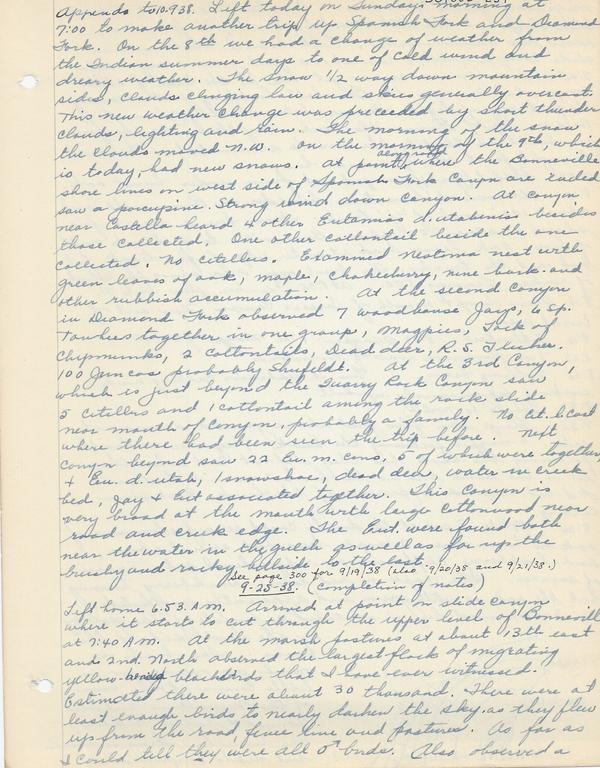 Appendo to 10.9.38. Left today on Sunday, morning at
7:00 to make another trip up Spanish Fork and Diamond
Fork. On the 8th we had a change of weather from
the Indian summer days to one of cold wind and
dreary weather. The snow 1/2 way down mountain
sides, clouds clinging low and skies generally overcast.
This new weather change was preceeded by short thunder
clouds, lighting and rain. The morning of the snow
the clouds moved N.W. on the morning of the 9th, which
is today, had new snows. At point, where the Bonneville
shore lines on west side of Spanish Fork Canyn are railed
saw a porcupine. Strong wind down canyon. At canyon
near Costella heard 4 other Eutamias d. utahensis besides
those collected. One other cottontail beside the one
collected. No citellus. Examined neotoma nest with
green leaves of oak, maple, chokecherry, nine bark and
other rubbish accumulation. At the second Canyon
in Diamond Fork observed 7 woodhouse Jays, 6 Sp.
Towhees together in one group, Magpies, Tock of
Chipmunks, 2 Cottontails, Dead deer, R. S. Flicker.
100 Juncos probably Shufeldt. At the 3rd Canyon,
which is just beyond the Quarry Rock Canyon saw
5 citellus and 1 cottontail among the rock slide
near mouth of canyon, probably a family. No Cit.
where there had been seen the trip before. Next
canyn beyond saw 22 Eu. m. cons, 5 of which were together,
4 Eu. d. utah, 1 snowshoe, dead deer, water in creek
bed, Jay & Eut associated together. This Canyon is
very broad at the mouth with large cottonwood near
road and creek edge. The Eut. were found both
near the water in the gulch as well as far up the
brushy and rocky hillside to the east.
See page 300 for 9/19/38 (also 9/20/38 and 9/21/38.)
9-25-38. (completion of notes)
Left home 6:53 A.M. Arrived at point on slide canyon
where it starts to cut through the upper level of Bonnevill
at 7:40 A.M. At the marsh pastures at about 13th east
and 2nd North observed the largest flock of migrating
yellow-headed blackbirds that I have ever witnessed.
Estimated there were about 30 thousand. There were at
least enough birds to nearly darken the sky as they flew
up from the road, fence line and pastures. As far as
I could till they were all ♂ birds. Also observed a